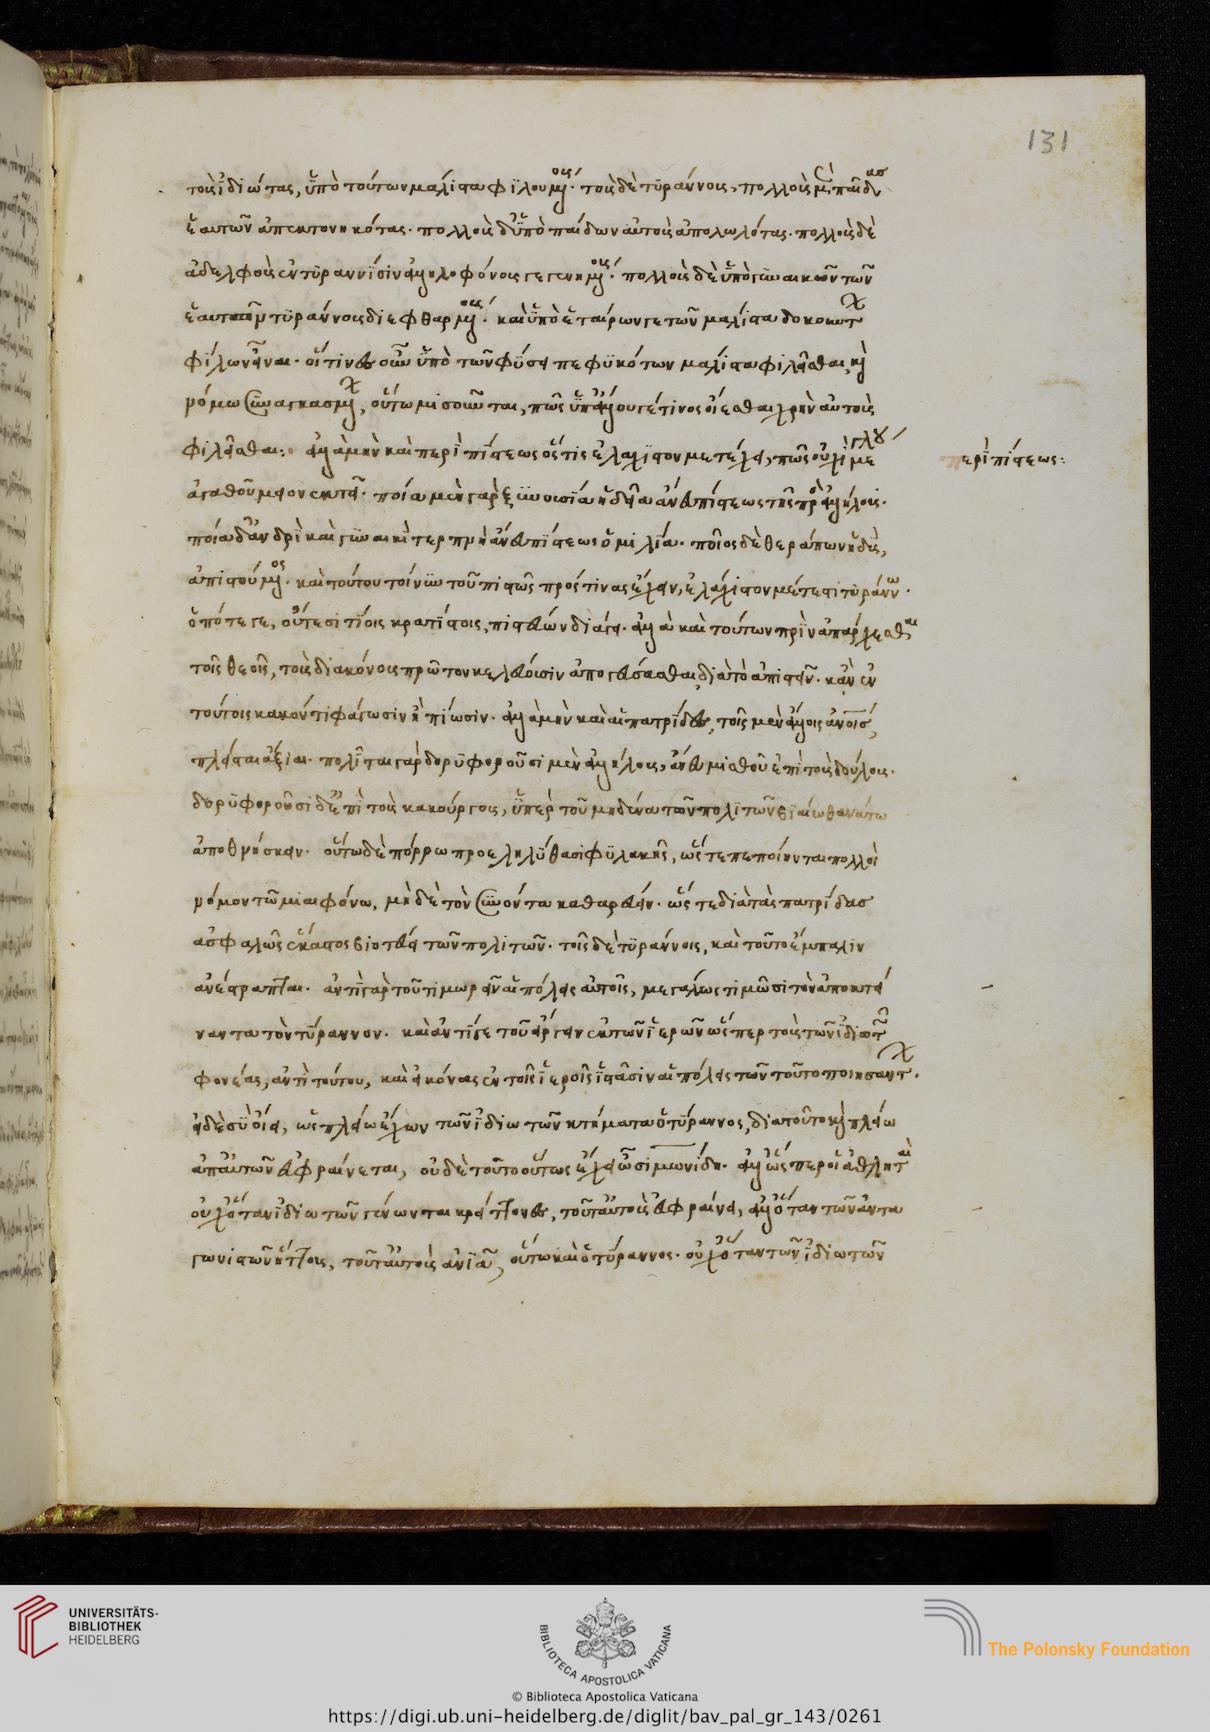 τοὺς ἰδιώτας, ὑπὸ τούτων μάλιστα φιλουμένους· τοὺς δὲ τυράννους, πολλοὺς μὲν παῖδας
ἑαυτῶν ἀπεκτονηκότας· πολλοὺς δ' ὑπὸ παίδων αὐτοὺς ἀπολωλότας· πολλοὺς δὲ
ἀδελφοὺς ἐν τυραννίσιν ἀλληλοφόνους γεγενημένους· πολλοὺς δὲ ὑπὸ γυναικῶν τῶν
ἑαυτῶν τυράννους διεφθαρμένους· καὶ ὑπὸ ἑταίρων γε τῶν μάλιστα δοκούντων
φίλων εἶναι· οἵτινες οὖν ὑπὸ τῶν φύσει πεφυκότων μάλιστα φιλεῖσθαι, καὶ
νόμῳ συναγκασμένων, οὕτω μισοῦνται, πῶς ὑπ' ἄλλου γέ τινος οἴεσθαι χρὴ αὐτοὺς
φιλεῖσθαι:· ἀλλὰ μὴν καὶ περὶ πίστεως ὅστις ἐλάχιστον μετέχει, πῶς οὐχὶ μεγάλου
περὶ πίστεως:
ἀγαθοῦ μειονεκτεῖ· ποία μὲν γὰρ ξυνουσία ἡδεῖα ἄνευ πίστεως τῆς πρὸς ἀλλήλους·
ποία δ' ἀνδρὶ καὶ γυναικὶ τερπνὴ ἄνευ πίστεως ὁμιλία· ποῖος δὲ θεράπων ἡδὺς,
ἀπιστούμενος· καὶ τούτου τοίνυν τοῦ πιστῶς πρός τινας ἔχειν, ἐλάχιστον μέτεστι τυράννῳ·
ὁπότε γε, οὔτε σιτίοις κρατίστοις, πιστεύων διάγει· ἀλλὰ καὶ τούτων πρὶν ἀπάρχεσθαι
τοῖς θεοῖς, τοὺς διακόνους πρῶτον κελεύουσιν ἀπογεύσασθαι, διὰ τὸ ἀπιστεῖν· κἂν ἐν
τούτοις κακόν τι φάγωσιν ἢ πίωσιν· ἀλλὰ μὴν καὶ αἱ πατρίδες, τοῖς μὲν ἄλλοις ἀνοις,
πλείσται ἄξιαι· πολῖται γὰρ δορυφοροῦσι μὲν ἀλλήλους, ἄνευ μισθοῦ ἐπὶ τοὺς δούλους·
δορυφοροῦσι δ' ἐπὶ τοὺς κακούργους, ὑπὲρ τοῦ μηδένα τῶν πολιτῶν βιαίῳ θανάτῳ
ἀποθνήσκειν· οὕτω δὲ πόρρω προεληλύθασι φυλακῆς, ὥστε πεποίηνται πολλοὶ
νόμον τῷ μιαιφόνῳ, μηδὲ τὸν συνόντα καθαρεύειν· ὥστε διὰ τὰς πατρίδας
ἀσφαλῶς ἕκαστος βιοτεύει τῶν πολιτῶν· τοῖς δὲ τυράννοις, καὶ τοῦτο ἔμπαλιν
ἀνέστραπται· ἀντὶ γὰρ τοῦ τιμωρεῖν αἱ πόλεις αὐτοῖς, μεγάλως τιμῶσι τὸν ἀποκτεί
ναντα τὸν τύραννον· καὶ ἀντί γε τοῦ εἴργειν ἐκ τῶν ἱερῶν ὥσπερ τοὺς τῶν ἰδιωτῶν
φονέας, ἀντὶ τούτου, καὶ εἰκόνας ἐν τοῖς ἱεροῖς ἱστᾶσιν αἱ πόλεις τῶν τοῦτο ποιησάντων.
εἰ δὲ σὺ οἴει, ὡς πλείω ἔχων τῶν ἰδιωτῶν κτήματα ὁ τύραννος, διὰ τοῦτο καὶ πλείω
ἀπ' αὐτῶν εὐφραίνεται, οὐδὲ τοῦτο οὕτως ἔχει ὦ σιμωνίδη· ἀλλ' ὥσπερ οἱ ἀθληταὶ
οὐχ ὅταν ἰδιωτῶν γένωνται κρείττονες, τοῦτ' αὐτοὺς εὐφραίνει, ἀλλ' ὅταν τῶν ἀντα
γωνιστῶν ἥττους, τοῦτ' αὐτοὺς ἀνιᾶ, οὕτω καὶ ὁ τύραννος· οὐχ ὅταν τῶν ἰδιωτῶν
131
UNIVERSITÄTS-
BIBLIOTHEK
HEIDELBERG
BIBLIOTECA APOSTOLICA VATICANA
The Polonsky Foundation
© Biblioteca Apostolica Vaticana
https://digi.ub.uni-heidelberg.de/diglit/bav_pal_gr_143/0261